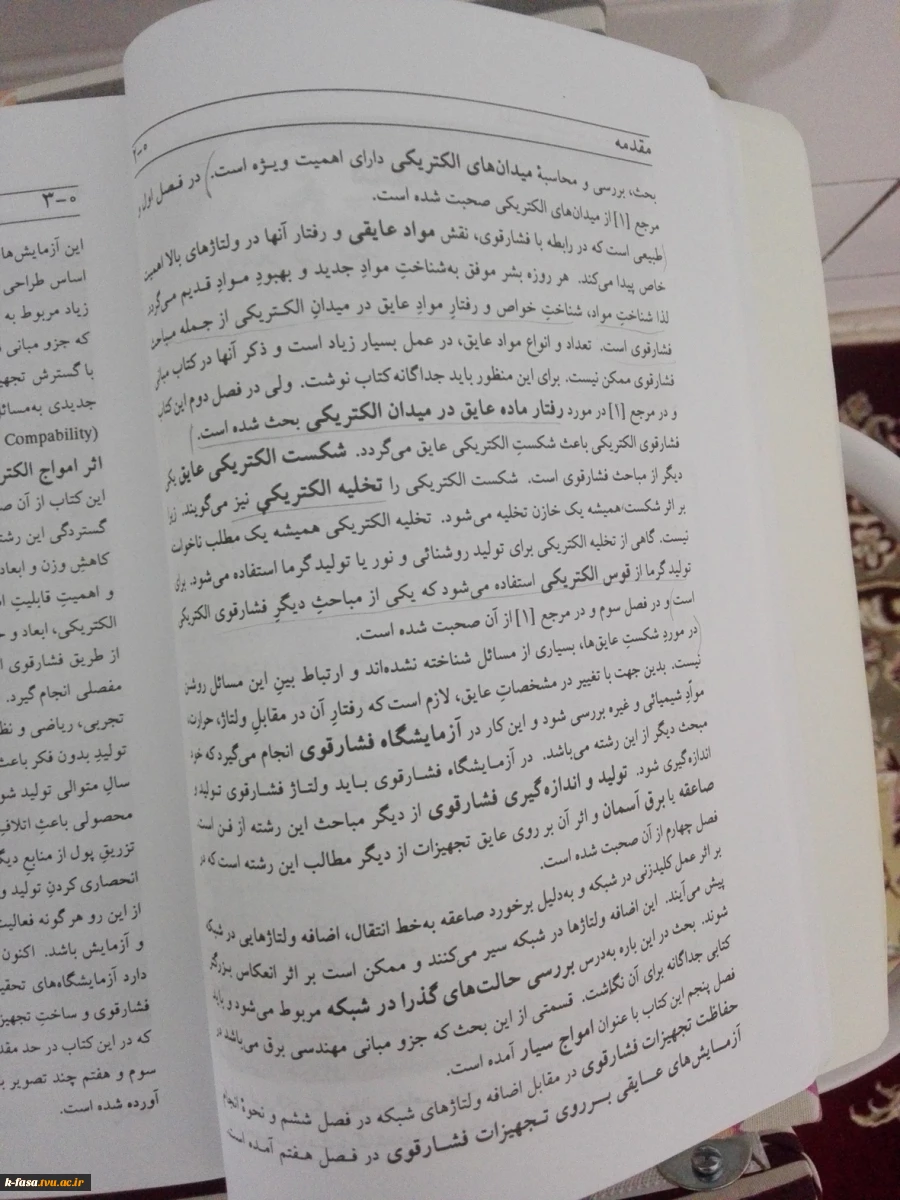 مقدمه
۲-۰
بحث، بررسی و محاسبۀ میدان‌های الکتریکی دارای اهمیت ویـژه است.) در فـصل اول و
مرجع [۱] از میدان‌های الکتریکی صحبت شده است.
(طبیعی است که در رابطه با فشارقوی، نقش مواد عایقی و رفتار آنها در ولتاژهای بالا اهمیت
خاص پیدا می‌کند. هر روزه بشر موفق به‌شناختِ موادِ جدید و بهبودِ مـوادِ قـدیم می‌گردد
لذا شناختِ مواد، شناختِ خواص و رفتارِ موادِ عایق در میدانِ الکـتریکی از جـمله مباحث
فشارقوی است. تعداد و انواع مواد عایق، در عمل بسیار زیاد است و ذکر آنها در کتاب مبانی
فشارقوی ممکن نیست. برای این منظور باید جداگانه کتاب نوشت. ولی در فصل دوم این کتاب
و در مرجع [۱] در مورد رفتار ماده عایق در میدان الکتریکی بحث شده است.)
فشارقوی الکتریکی باعث شکستِ الکتریکی عایق می‌گردد. شکست الکتریکی عایق یکی
دیگر از مباحث فشارقوی است. شکست الکتریکی را تخلیه الکتریکی نیز می‌گویند. زیرا
بر اثر شکست، همیشه یک خازن تخلیه می‌شود. تخلیه الکتریکی همیشه یک مطلب ناخواسته
نیست. گاهی از تخلیه الکتریکی برای تولید روشنائی و نور یا تولید گرما استفاده می‌شود. برای
تولید گرما از قوس الکتریکی استفاده می‌شود که یکی از مباحثِ دیگرِ فشارقوی الکتریکی
است و در فصل سوم و در مرجع [۱] از آن صحبت شده است.
(در موردِ شکستِ عایق‌ها، بسیاری از مسائل شناخته نشده‌اند و ارتباط بینِ این مسائل روشن
نیست. بدین جهت با تغییر در مشخصاتِ عایق، لازم است که رفتارِ آن در مقابلِ ولتاژ، حرارت،
موادِ شیمیائی و غیره بررسی شود و این کار در آزمایشگاه فشارقوی انجام می‌گیرد که خود
مبحث دیگر از این رشته می‌باشد. در آزمـایشگاه فشارقوی بـاید ولتـاژ فشارقوی تـولید و
اندازه‌گیری شود. تولید و اندازه‌گیری فشارقوی از دیگر مباحث این رشته از فـن است.
صاعقه یا برق آسمان و اثر آن بر روی عایق تجهیزات از دیگر مطالب این رشته است که در
فصل چهارم از آن صحبت شده است.
بر اثر عمل کلیدزنی در شبکه و به‌دلیل برخورد صاعقه به‌خط انتقال، اضافه ولتاژهایی در شبکه
پیش می‌آیند. این اضافه ولتاژها در شبکه سیر می‌کنند و ممکن است بر اثر انعکاس بـزرگتر
شوند. بحث در این باره به‌درس بررسی حالت‌های گذرا در شبکه مربوط می‌شود و باید
کتابی جداگانه برای آن نگاشت. قسمتی از این بحث که جزو مبانی مهندسی برق می‌باشد، در
فصل پنجم این کتاب با عنوان امواج سیار آمده است.
حفاظت تجهیزات فشارقوی در مقابل اضافه ولتاژهای شبکه در فصل ششم و نحوۀ انجام
آزمـایش‌های عـایقی بـرروی تـجهیزات فـشارقوی در فـصل هـفتم آمـده است.
۳-۰
این آزمایش‌ها
اساس طراحی
زیاد مربوط به
که جزو مبانی
با گسترش تجهیز
جدیدی به‌مسائل
(Compability
اثر امواج الکتر
این کتاب از آن ص
گستردگی این رشته
کاهشِ وزن و ابعاد
و اهمیتِ قابلیتِ ا
الکتریکی، ابعاد و
از طریق فشارقوی ا
مفصلی انجام گیرد.
تجربی، ریاضی و نظ
تولیدِ بدون فکر باعث
سالِ متوالی تولید شو
محصولی باعثِ اتلافِ
تزریقِ پول از منابعِ دیگ
انحصاری کردنِ تولید و
از این رو هرگونه فعالیت
و آزمایش باشد. اکنون
دارد آزمایشگاه‌های تحقی
فشارقوی و ساختِ تجهیز
که در این کتاب در حد مقد
سوم و هفتم چند تصویر
آورده شده است.
k-fasa.tvu.ac.ir